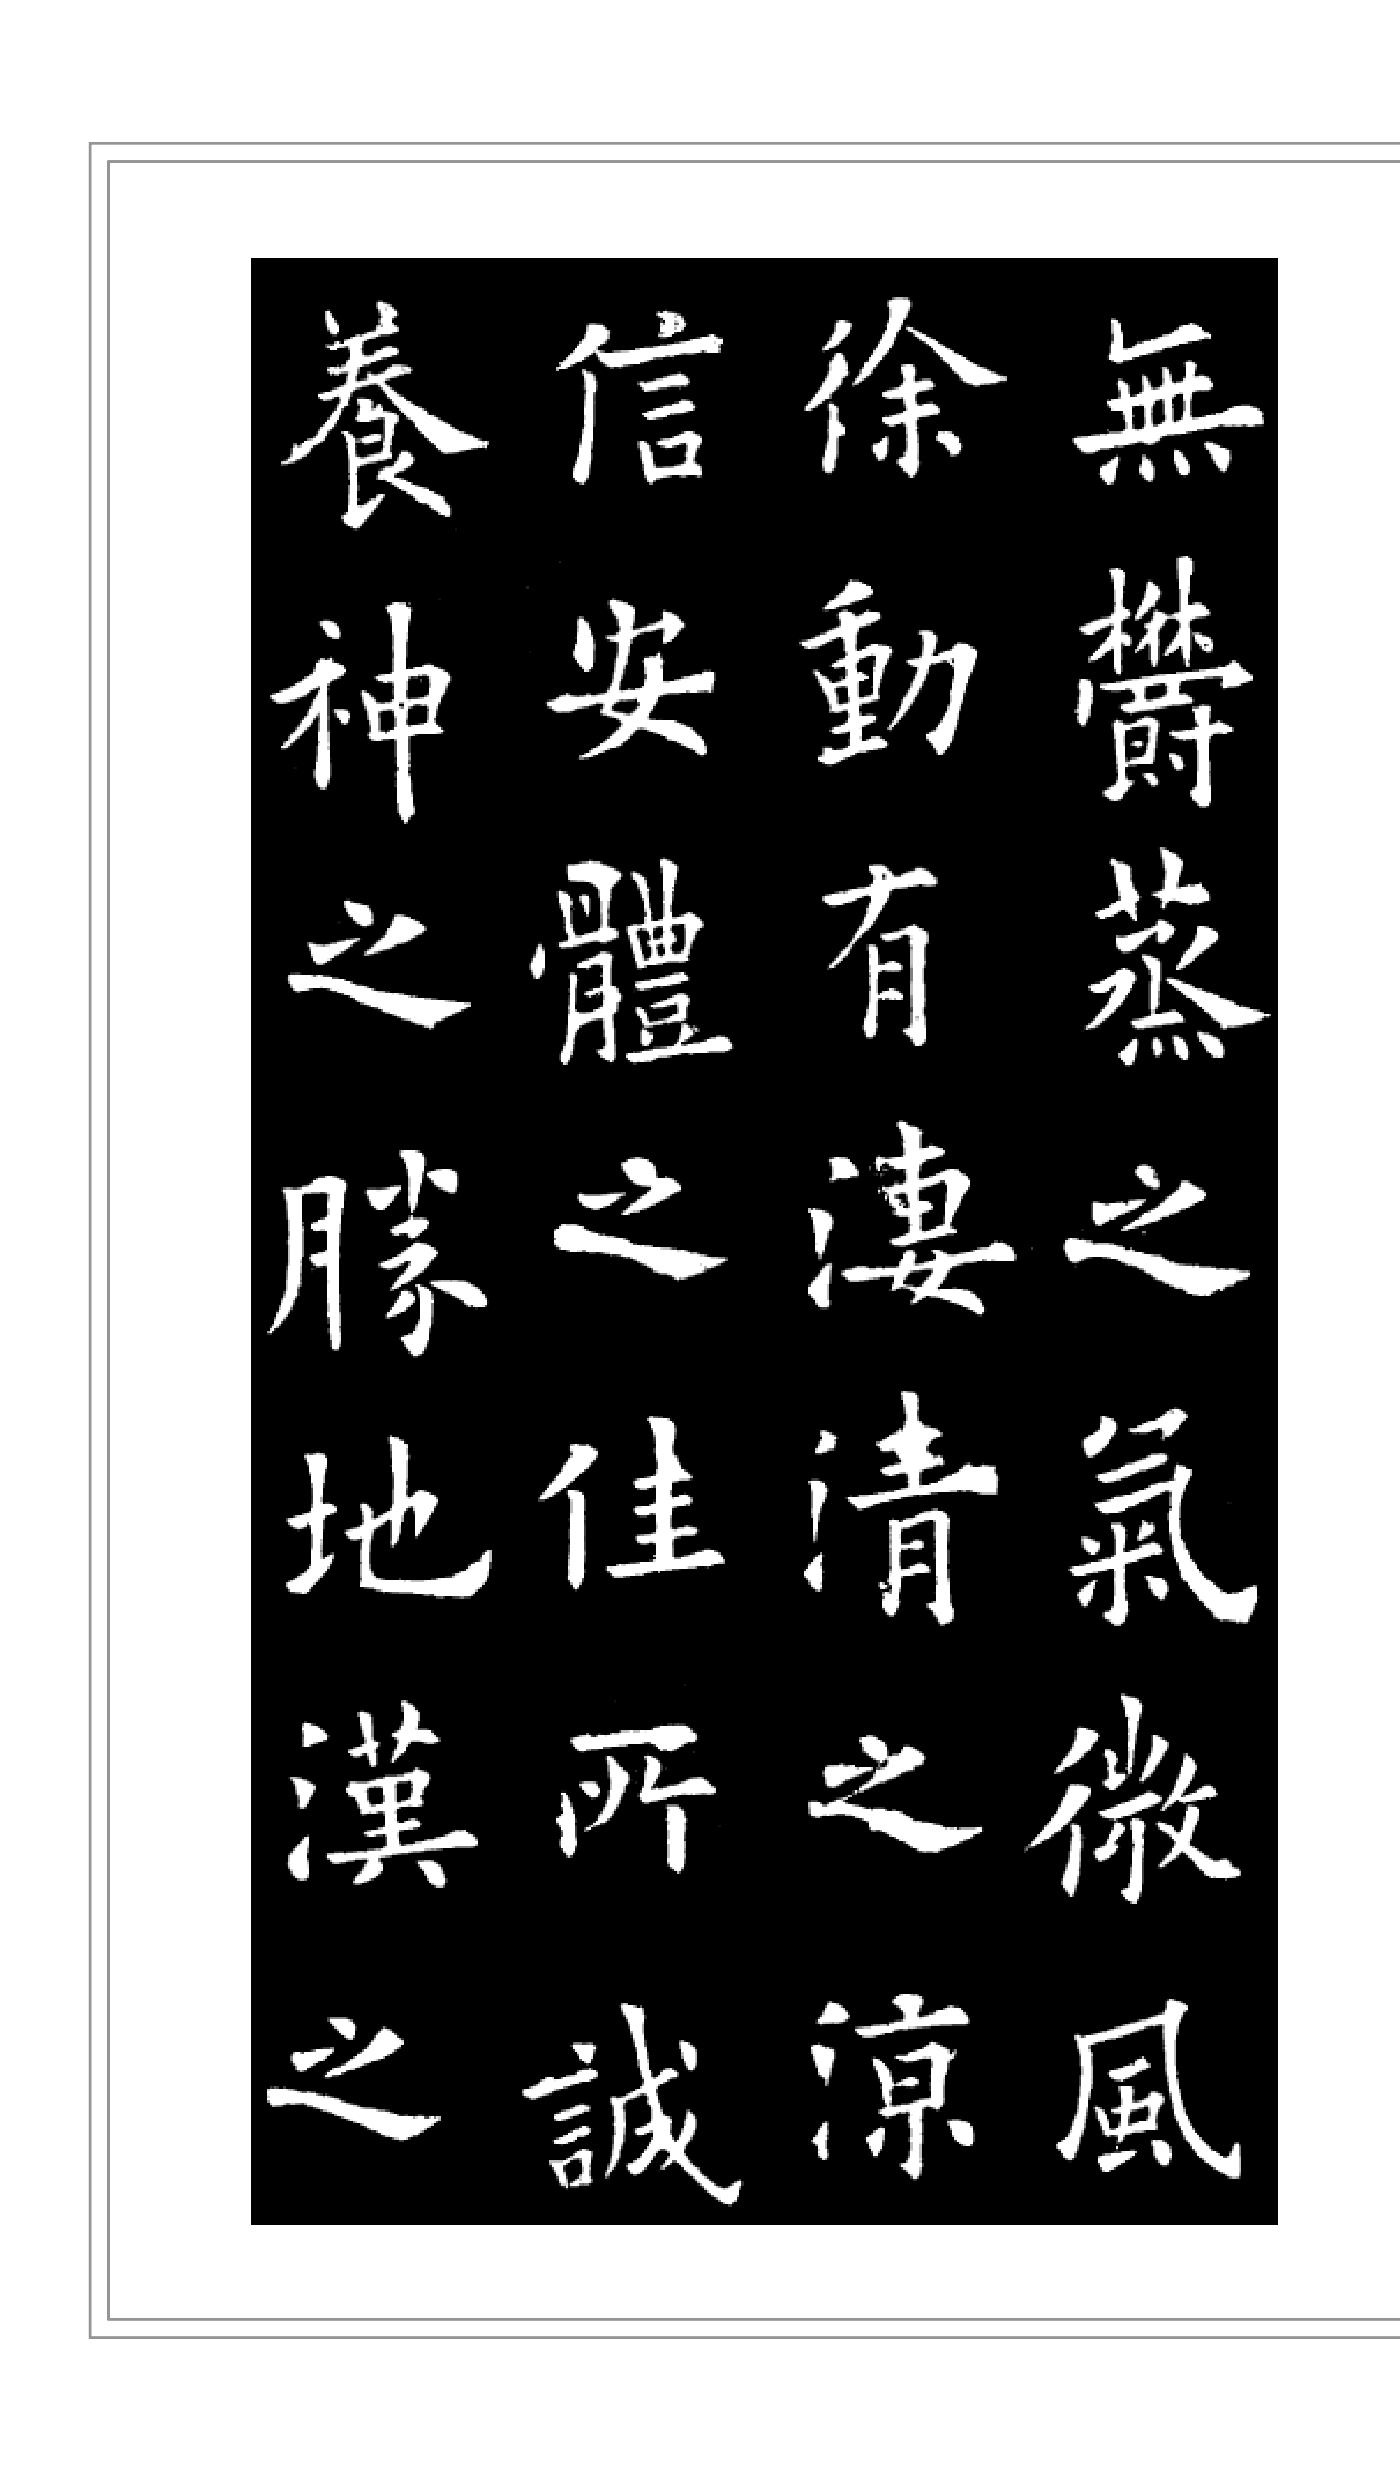 無欝蒸之氣微風
徐動有淒清之涼
信安體之佳所誠
養神之勝地漢之